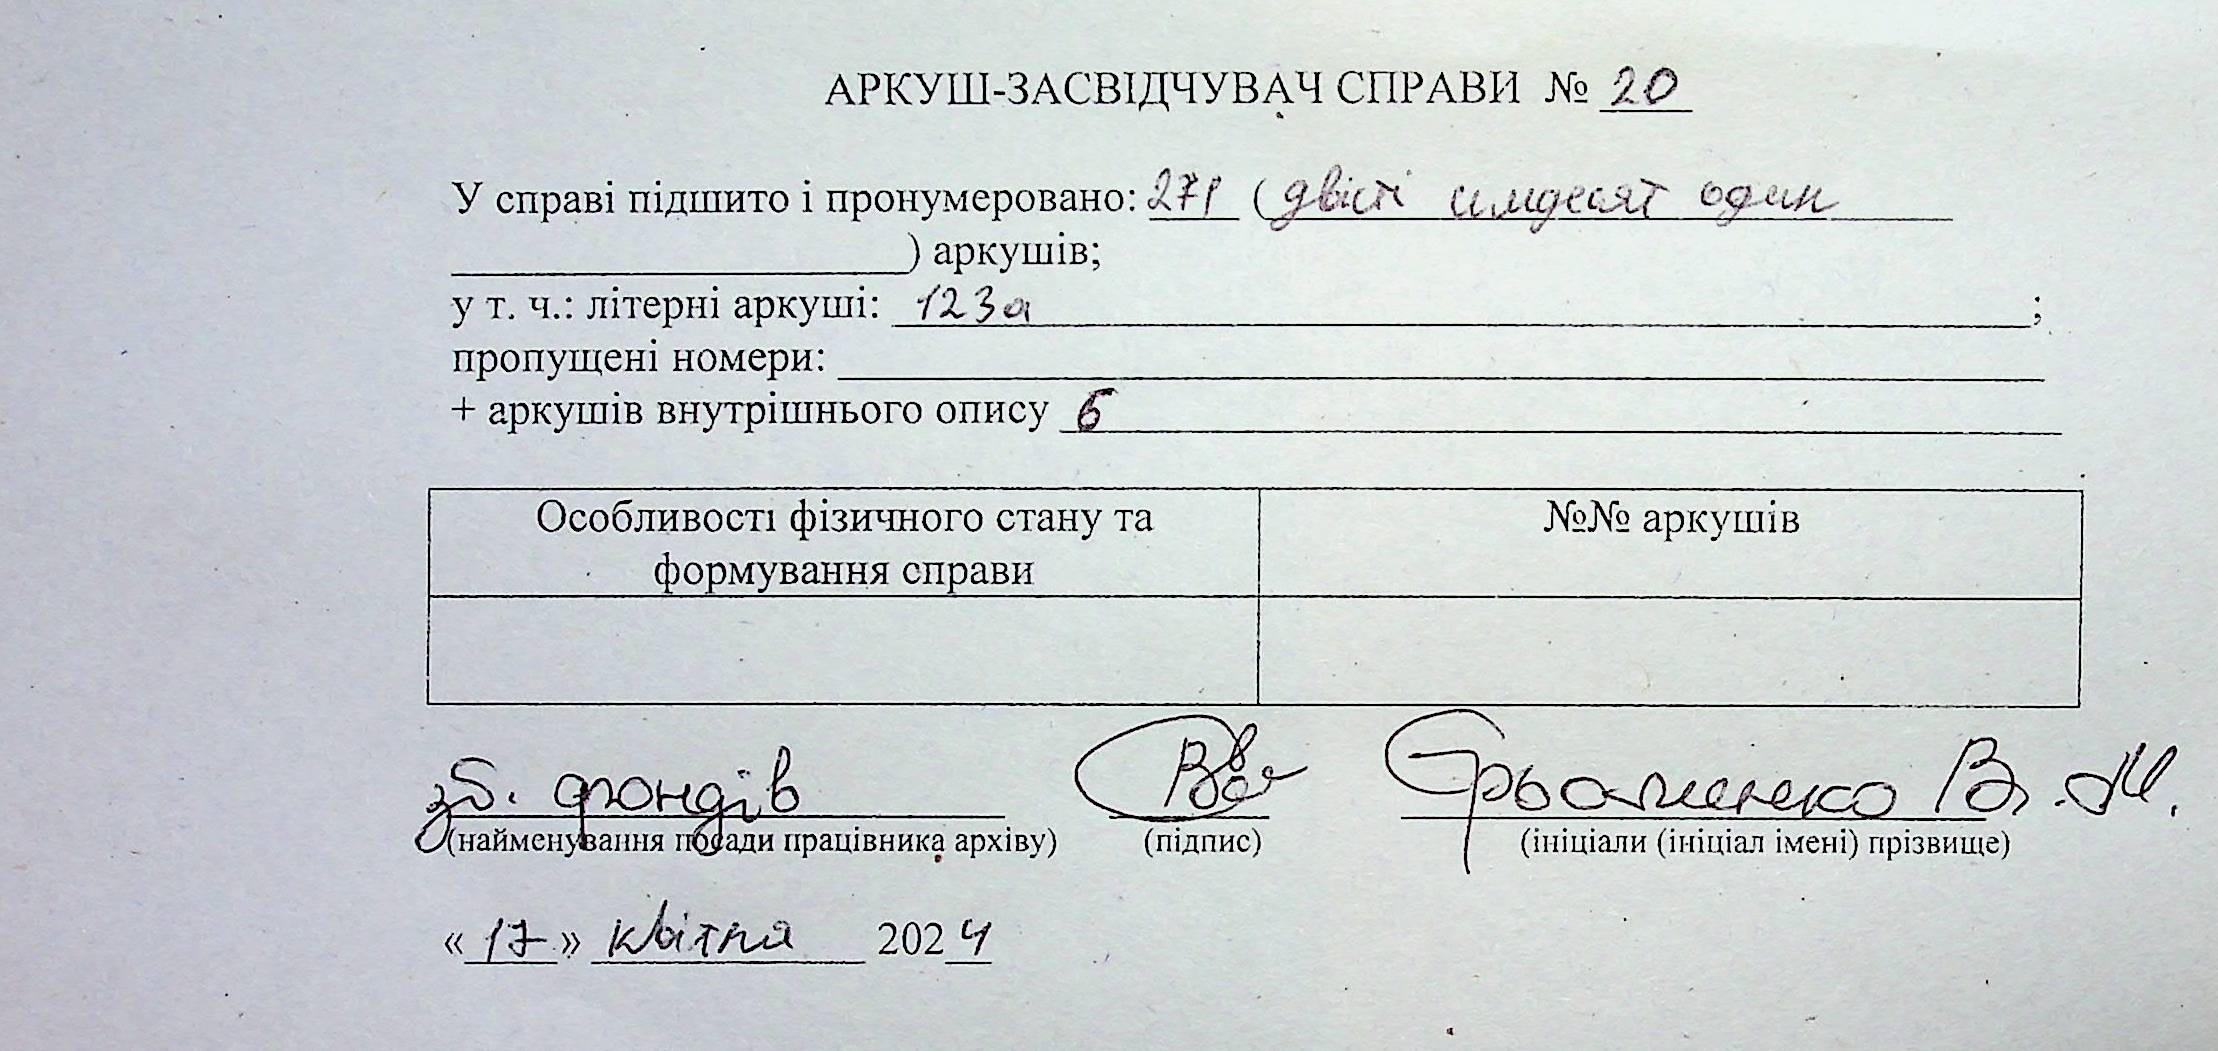 АРКУШ-ЗАСВІДЧУВАЧ СПРАВИ № 20
У справі підшито і пронумеровано: 271 (двісті симдесят один
) аркушів;
у т. ч.: літерні аркуші: 123а ;
пропущені номери:
+ аркушів внутрішнього опису 6
Особливості фізичного стану та формування справи
№№ аркушів
зб. фондів
(найменування посади працівника архіву)
(підпис)
В. М.
(ініціали (ініціал імені) прізвище)
«17» квітня 2024